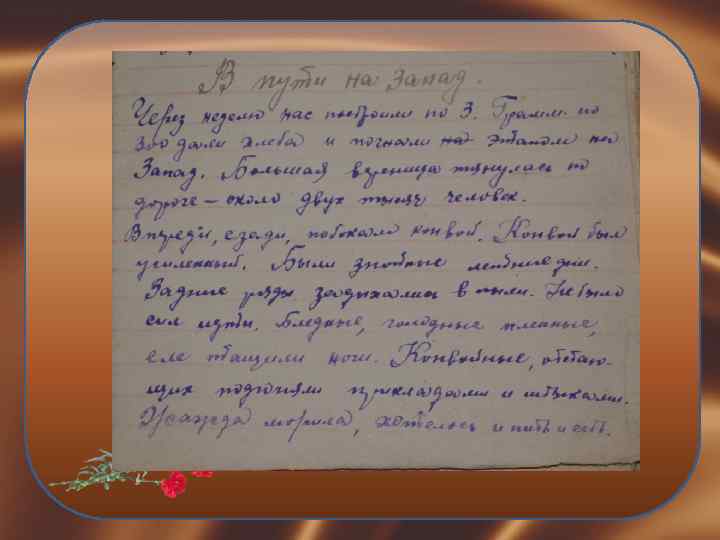 В пути на Запад.
Через неделю нас построили по 3. Грамм по
300 дали хлеба и погнали на этапом на
Запад. Большая вереница тянулась по
дороге – около двух тысяч человек.
Впереди, сзади, по бокам конвой. Конвой был
усиленный. Были знойные летние дни.
Задние ряды задыхались в пыли. Не было
сил идти. Бледные, голодные пленные,
еле тащили ноги. Конвойные, отстаю-
щих подгоняли прикладами и штыками.
Жажда морила, хотелось и пить и есть.